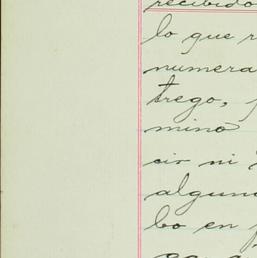 recibido
lo que r
numera
trego, p
mino
cir ni
alguna
bo en p